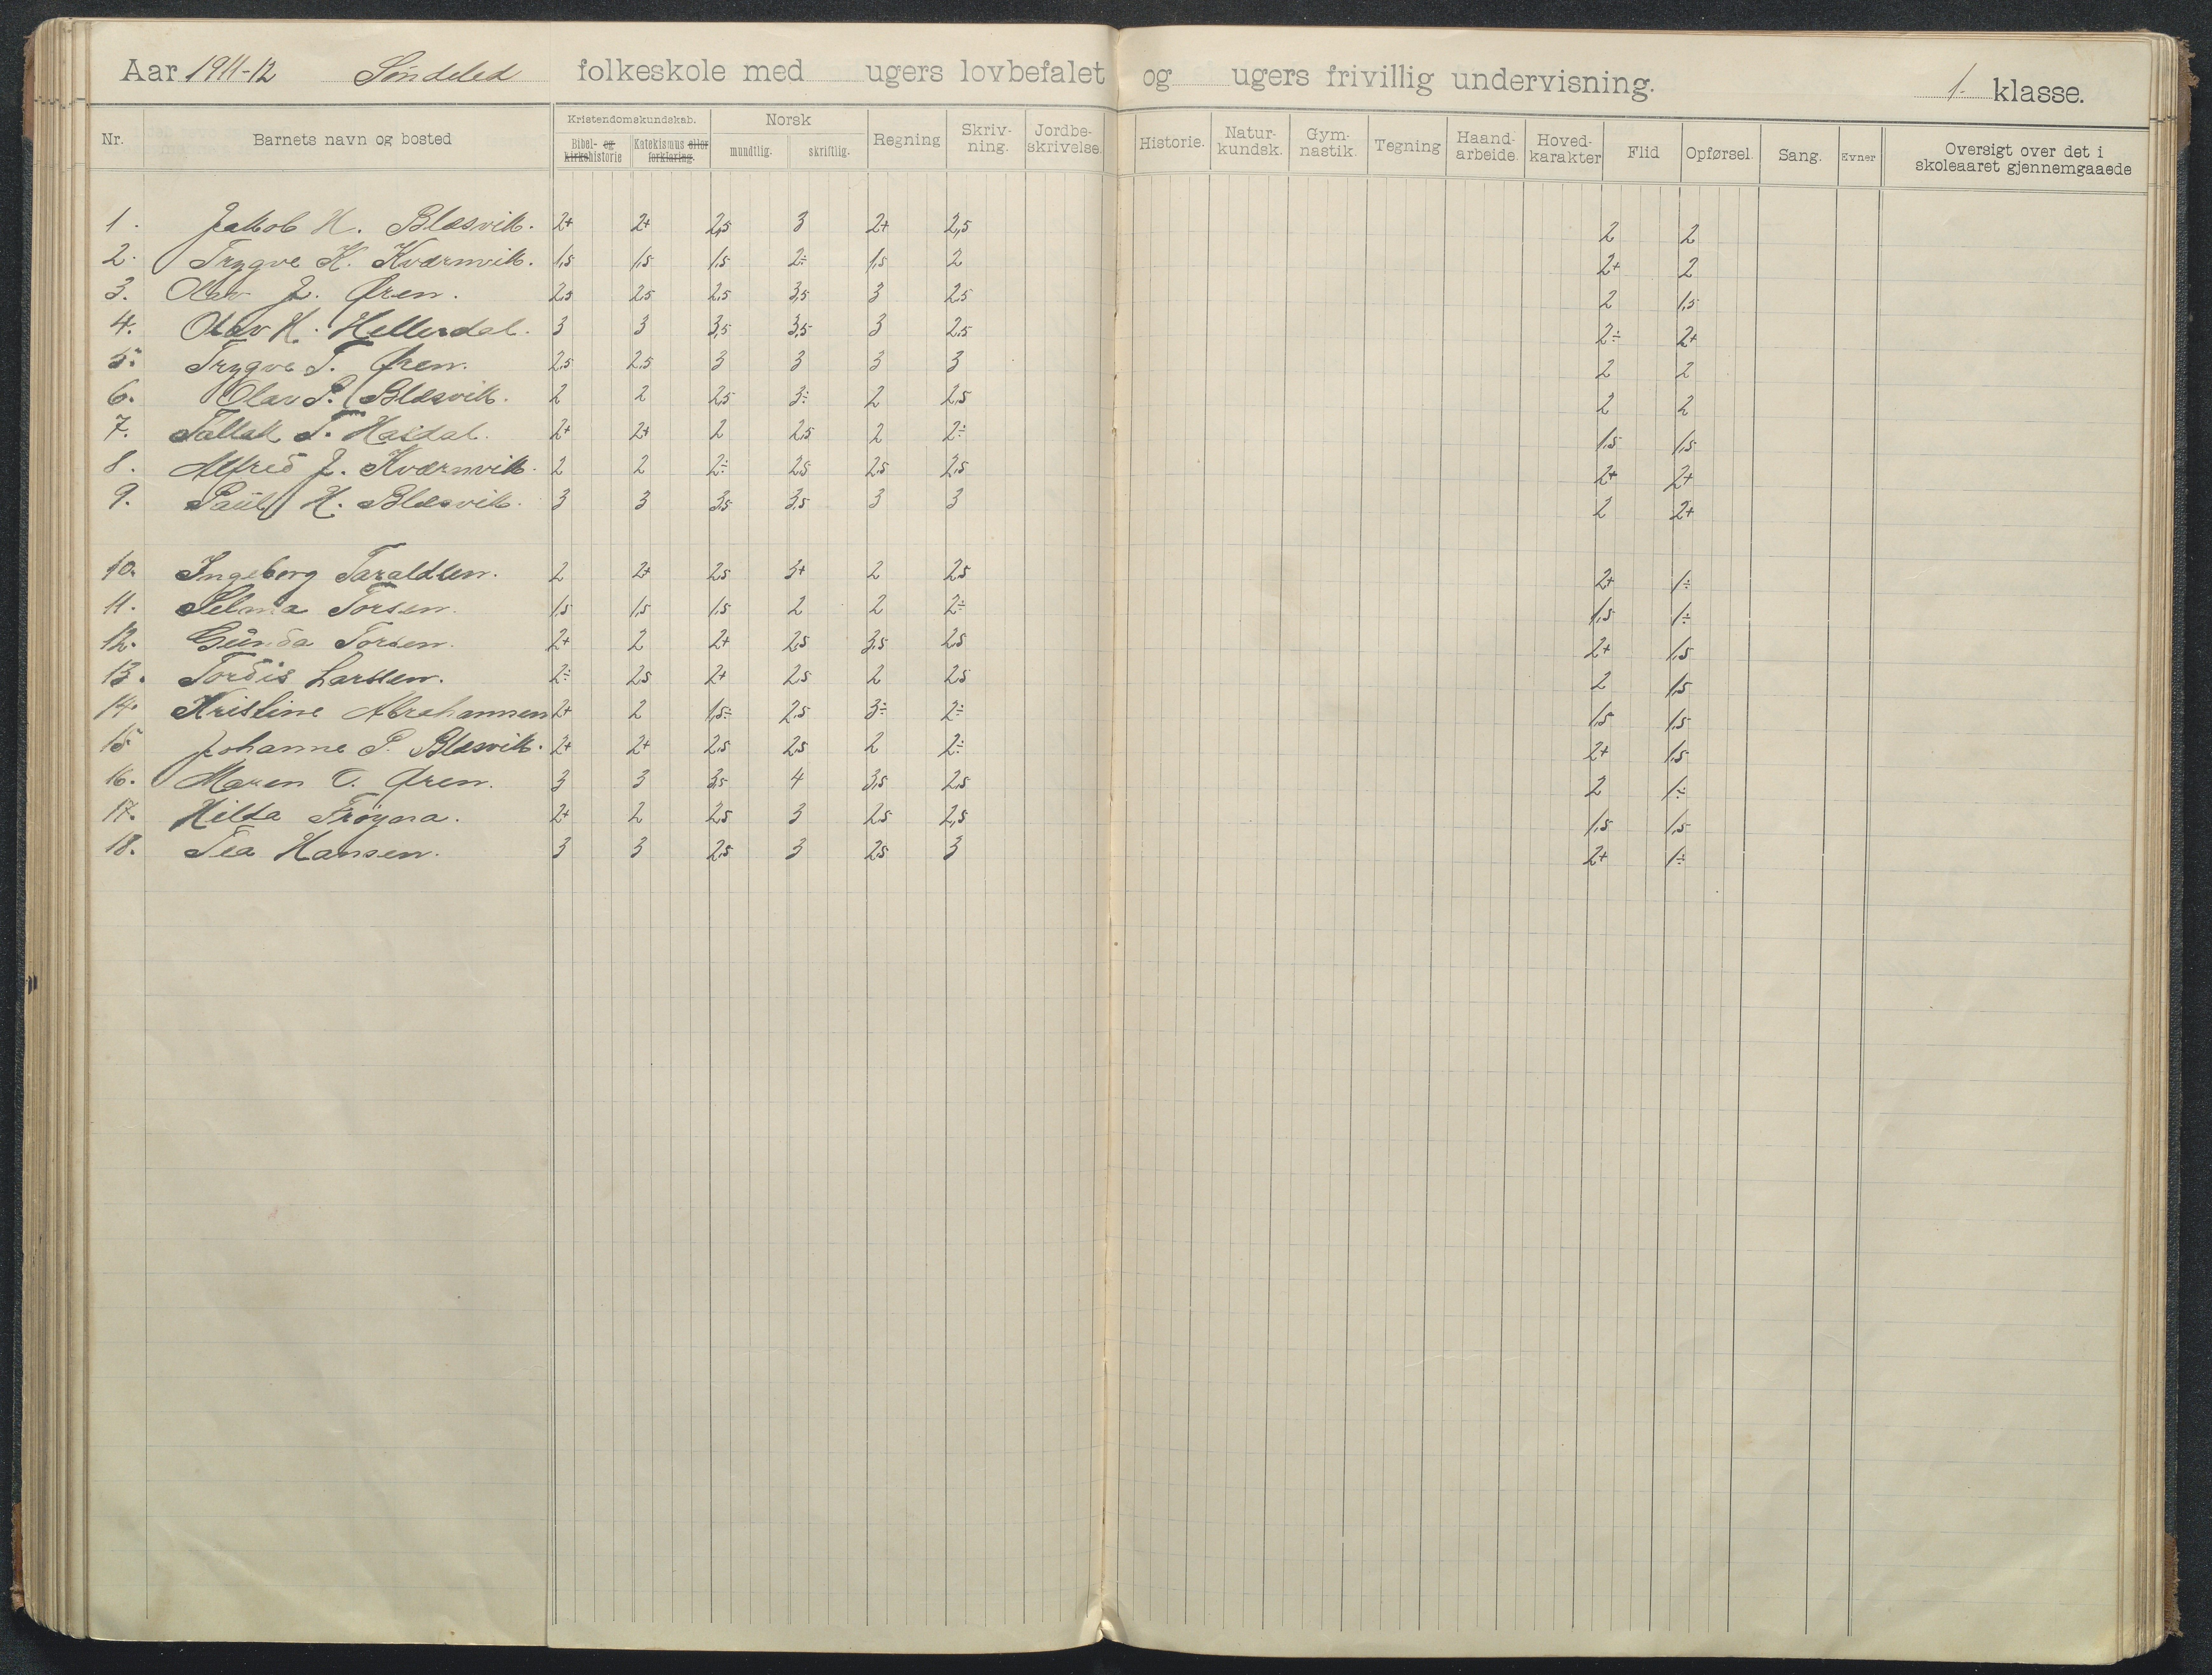 Aar 1911-12 Søndeled folkeskole med ugers lovbefalet og ugers frivillig undervisning. 1. klasse.
Nr. Barnets navn og bosted Kristendomskundskab. Bibel- og kirkehistorie Katekismus eller forklaring. Norsk mundtlig. skriftlig. Regning Skriv-ning. Jordbe-skrivelse. Historie. Natur-kundsk. Gym-nastik. Tegning Haand-arbeide. Hoved-karakter Flid Opførsel. Sang. Evner Oversigt over det i skoleaaret gjennemgaaede
1. Jakob H. Blæsvik. 2+ 2+ 2,5 3 2+ 2,5 2 2
2. Trygve K. Kværnvik. 1,5 1,5 1,5 2÷ 1,5 2 2+ 2
3. Olav J. Øren. 2,5 2,5 2,5 3,5 3 2,5 2 1,5
4. Olav H. Hellerdal. 3 3 3,5 3,5 3 2,5 2÷ 2+
5. Trygve T. Øren. 2,5 2,5 3 3 3 3 2 2
6. Olav P. Blæsvik. 2 2 2,5 3÷ 2 2,5 2 2
7. Tallak T. Hasdal. 2+ 2+ 2 2,5 2 2÷ 1,5 1,5
8. Alfred J. Kværnvik. 2 2 2÷ 2,5 2,5 2,5 2+ 2+
9. Paul H. Blæsvik. 3 3 3,5 3,5 3 3 2 2+
10. Ingeborg Taraldsen. 2 2+ 2,5 3+ 2 2,5 2+ 1÷
11. Selma Torsen. 1,5 1,5 1,5 2 2 2÷ 1,5 1÷
12. Gunda Torsen. 2+ 2 2+ 2,5 3,5 2,5 2+ 1,5
13. Tordis Larssen. 2÷ 2,5 2+ 2,5 2 2,5 2 1,5
14. Kristine Abrahamsen 2+ 2 1,5÷ 2,5 3÷ 2÷ 1,5 1,5
15 Johanne P. Blæsvik. 2+ 2+ 2,5 2,5 2 2÷ 2+ 1,5
16. Maren O. Øren. 3 3 3,5 4 3,5 2,5 2 1÷
17. Hilda Frøyna. 2+ 2 2,5 3 2,5 2,5 1,5 1,5
18. Tea Hansen. 3 3 2,5 3 2,5 3 2+ 1÷